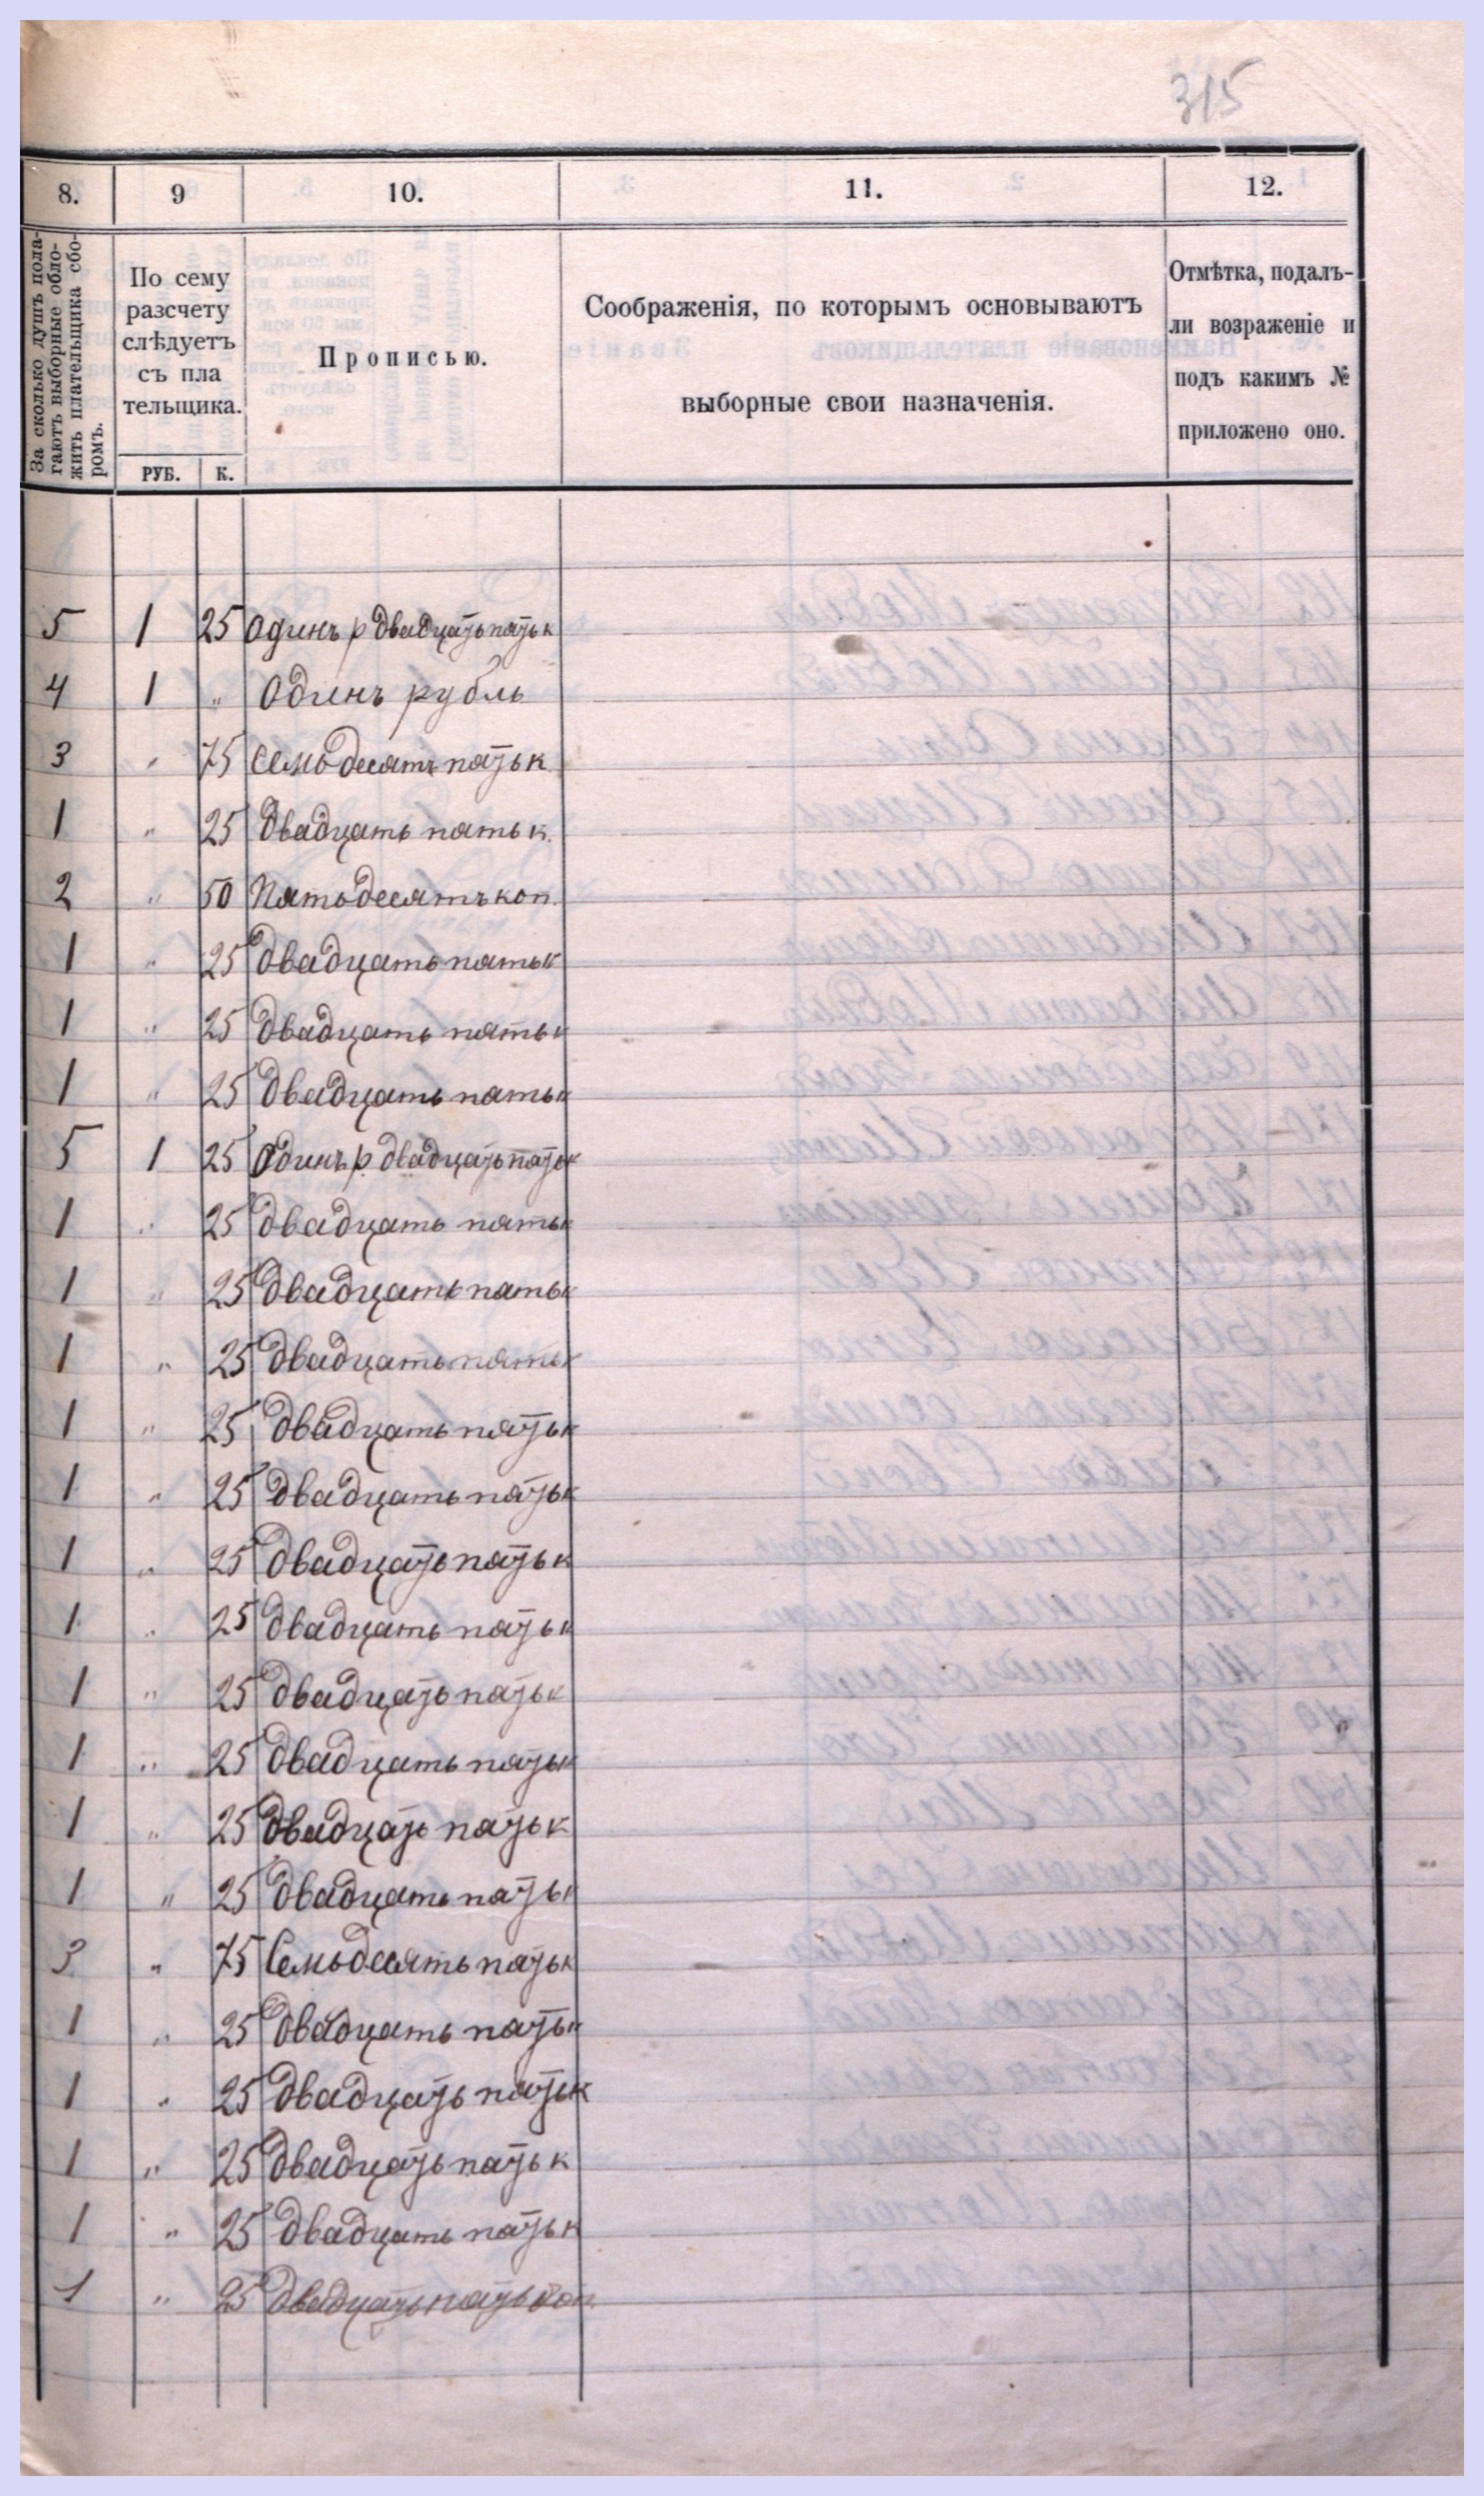 315
8. 9 10. 11. 12.
За сколько душъ пола-
гаютъ выборные обло-
жить плательщика сбо-
ромъ.
По сему
разсчету
слѣдуетъ
съ пла
тельщика.
РУБ. К.
Прописью.
Соображенія, по которымъ основываютъ
выборные свои назначенія.
Отмѣтка, подалъ-
ли возраженіе и
подъ какимъ №
приложено оно.
5 1 25 Одинъ р двадцать пять к
4 1 " Одинъ рубль
3 " 75 Семьдесятъ пять к
1 " 25 Двадцать пять к.
2 " 50 Пятьдесятъ коп.
1 " 25 двадцать пять к
1 " 25 двадцать пять к
1 " 25 двадцать пять к
5 1 25 Одинъ р. двадцать пять к
1 " 25 двадцать пять к
1 " 25 двадцать пять к
1 " 25 двадцать пять к
1 " 25 двадцать пять к
1 " 25 двадцать пять к
1 " 25 двадцать пять к
1 " 25 двадцать пять к
1 " 25 двадцать пять к
1 " 25 двадцать пять к
1 " 25 двадцать пять к
1 " 25 двадцать пять к
3 " 75 Семьдесять пять к
1 " 25 двадцать пять к
1 " 25 двадцать пять к
1 " 25 двадцать пять к
1 " 25 двадцать пять к
1 " 25 двадцать пять коп.